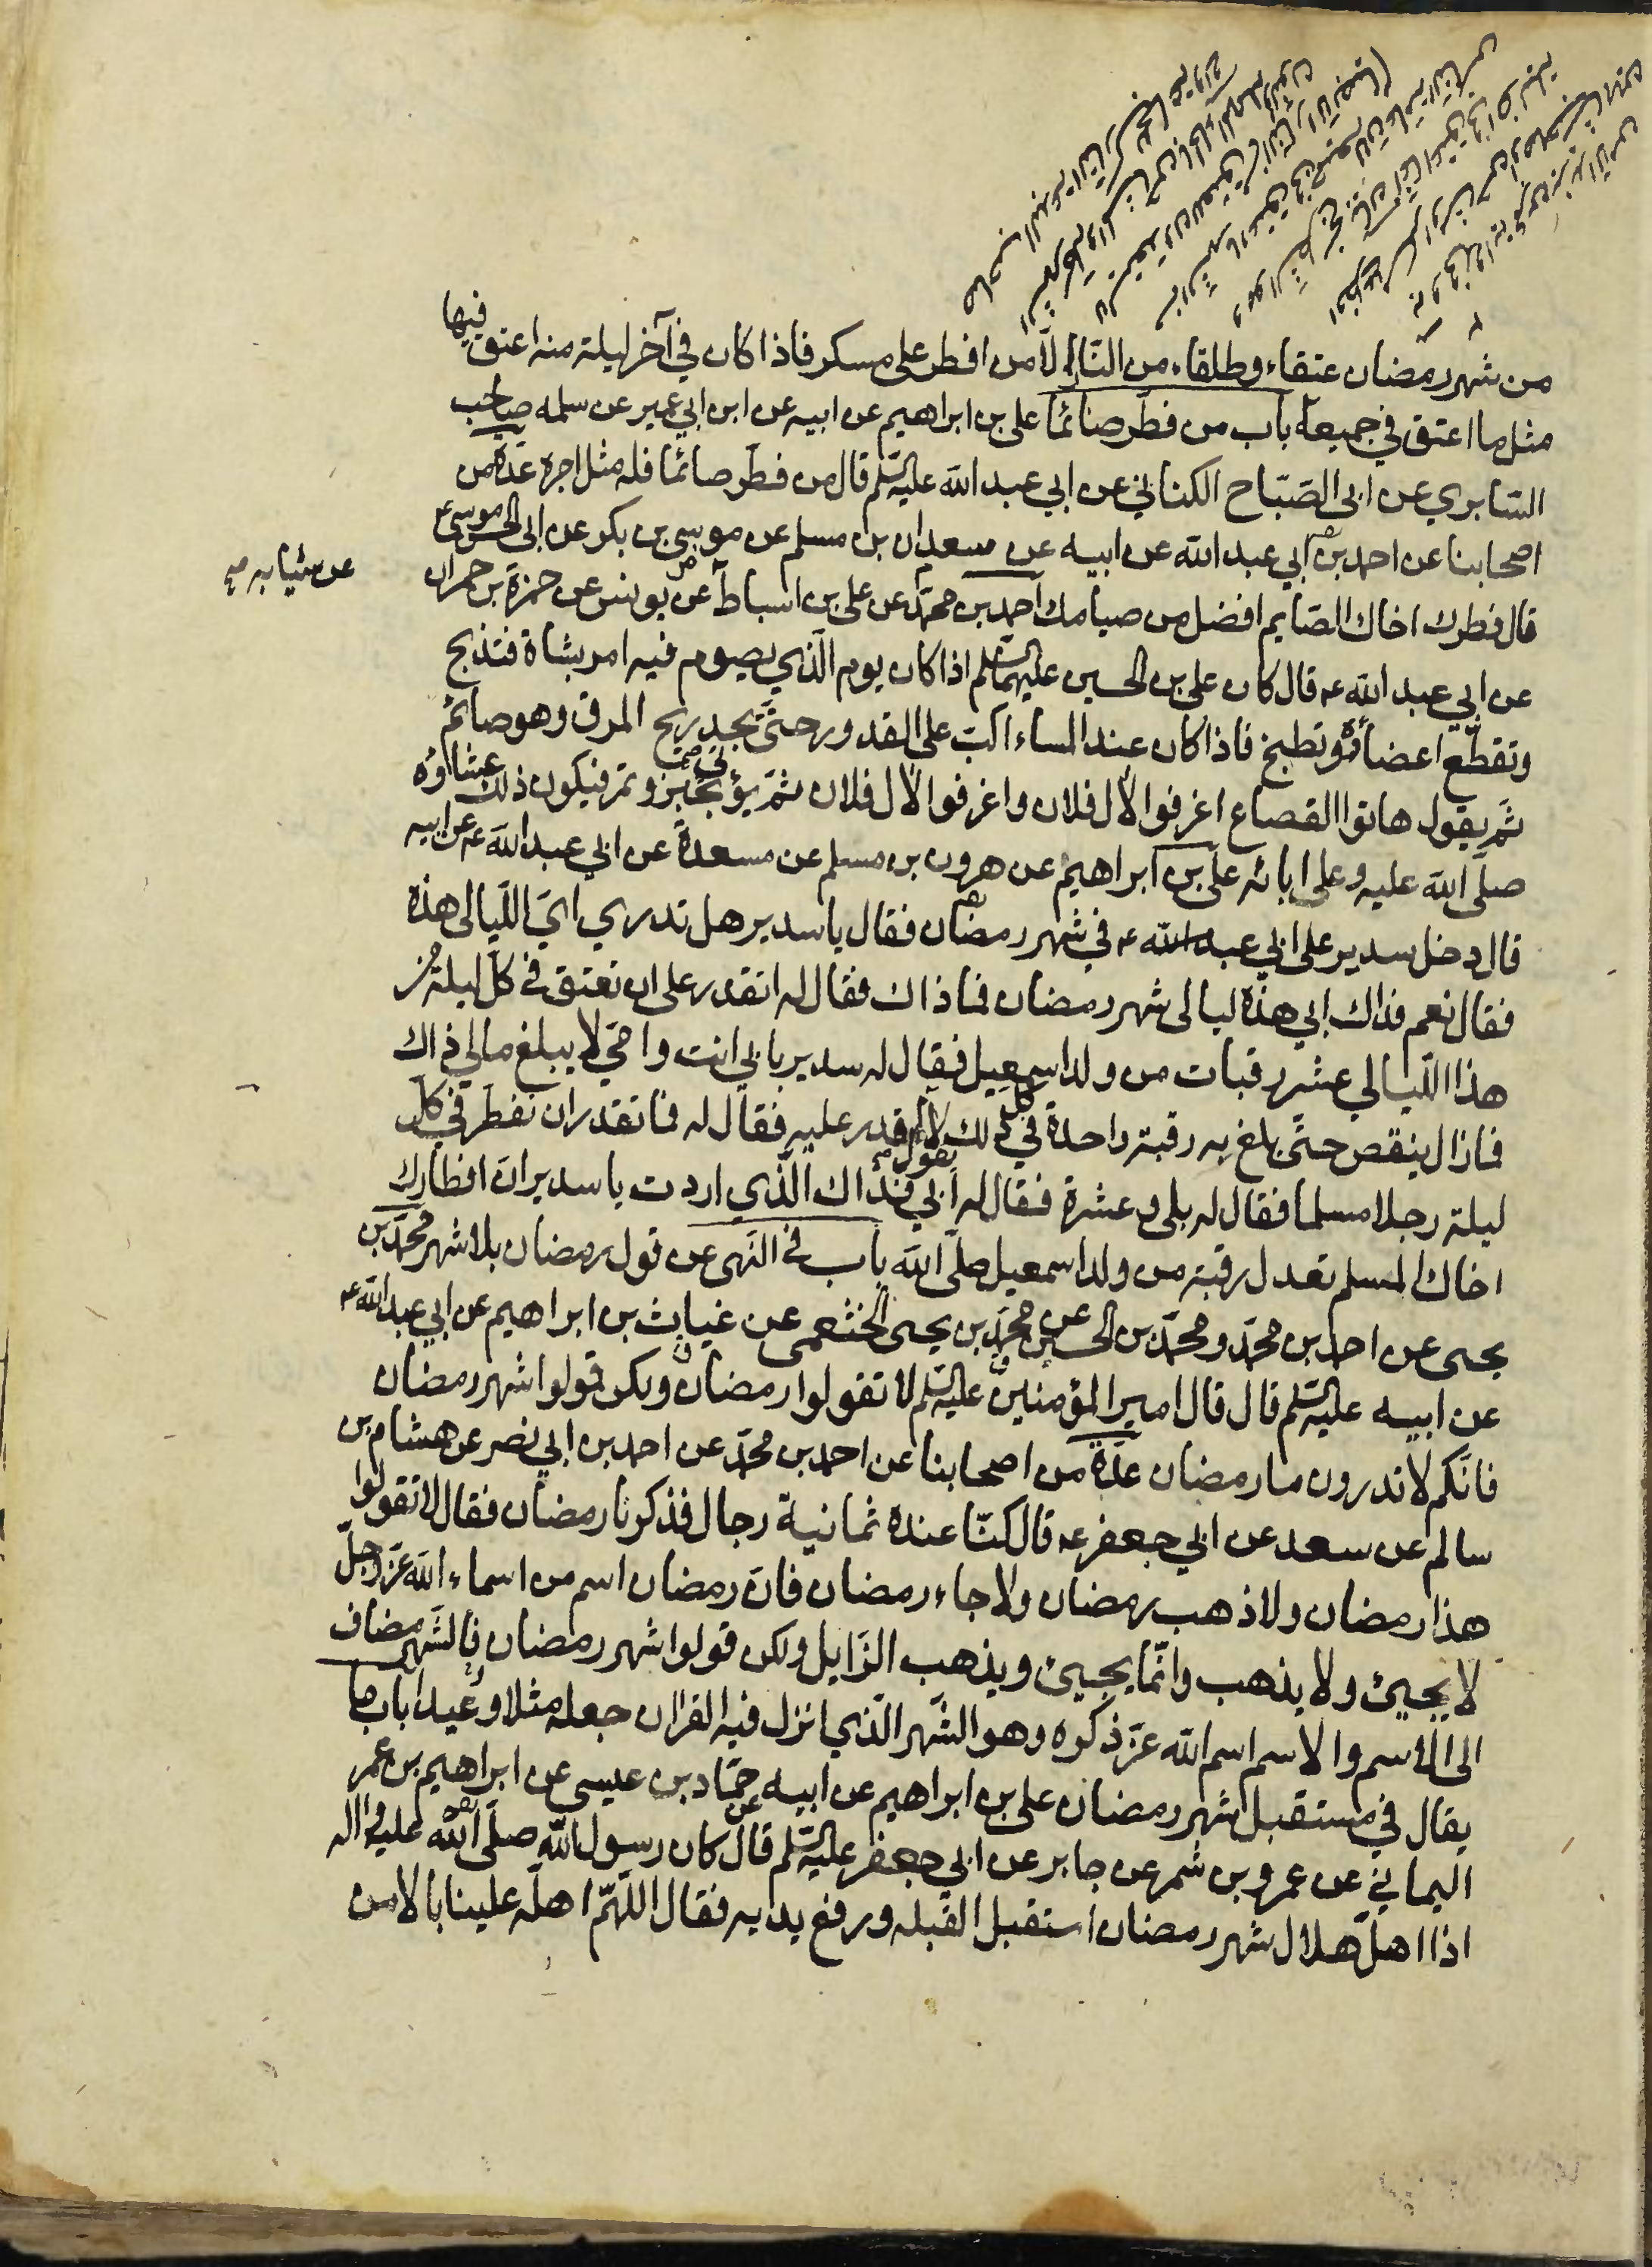 من شهر رمضان عتقاء وطلقاء من النار الا من افطر على مسكر فاذا كان في آخر ليلة منه اعتق فيها
مثل ما اعتق في جميعه باب من فطر صائما علي بن ابراهيم عن ابيه عن ابن ابي عمير عن سلمه صاحب
السابري عن ابي الصباح الكناني عن ابي عبد الله عليه السلم قال من فطر صائما فله مثل اجره عدة من
اصحابنا عن احمد بن ابي عبد الله عن ابيه عن سعدان بن مسلم عن موسى بن بكر عن ابي الحسن موسى ع
قال فطرك اخاك الصايم افضل من صيامك احمد بن محمد عن علي بن اسباط عن يونس عن حمزة بن حمران
عن سيابه
عن ابي عبد الله عه قال كان علي بن الحسين عليهما السلم اذا كان يوم الذي يصوم فيه امر بشاة فتذبح
وتقطع اعضاؤه وتطبخ فاذا كان عند المساء اكب على القدور حتى يجد ريح المرق وهو صائم
ثم يقول هاتوا القصاع اغرفوا لال فلان واغرفوا لال فلان ثم يؤتى بخبز وتمر فيكون ذلك عشاؤه
صلى الله عليه وعلى ابائه علي بن ابراهيم عن هرون بن مسلم عن مسعدة عن ابي عبد الله عه عن ابيه
قال دخل سدير على ابي عبد الله عه في شهر رمضان فقال يا سدير هل تدري اي الليالي هذه
فقال نعم فداك ابي هذه ليالي شهر رمضان فما ذاك فقال له اتقدر على ان تعتق في كل ليلة من
هذا الليالي عشر رقبات من ولد اسمعيل فقال له سدير بابي انت وامي لا يبلغ مالي ذاك
فما زال ينقص حتى بلغ به رقبة واحدة في كل ذلك يقول لا اقدر عليه فقال له فما تقدر ان تفطر في كل
ليلة رجلا مسلما فقال له بلى وعشرة فقال له ابي فذاك الذي اردت يا سدير ان افطارك
اخاك المسلم تعدل رقبة من ولد اسمعيل صلى الله باب في النهى عن قول رمضان بلا شهر محمد بن
يحيى عن احمد بن محمد ومحمد بن الحسين عن محمد بن يحيى الخثعمي عن غياث بن ابراهيم عن ابي عبد الله عه
عن ابيه عليه السلم قال قال امير المؤمنين عليه السلم لا تقولوا رمضان ولكن قولوا شهر رمضان
فانكم لا تدرون ما رمضان عدة من اصحابنا عن احمد بن محمد عن احمد بن ابي نصر عن هشام بن
سالم عن سعد عن ابي جعفر عه قال كنا عنده ثمانية رجال فذكرنا رمضان فقال لا تقولوا
هذا رمضان ولا ذهب رمضان ولا جاء رمضان فان رمضان اسم من اسماء الله عز وجل
لا يجيئ ولا يذهب وانما يجيئ ويذهب الزايل ولكن قولوا شهر رمضان فالشهر مضاف
الى الاسم والاسم اسم الله عز ذكره وهو الشهر الذي انزل فيه القران جعله مثلا وعيدا باب ما
يقال في مستقبل شهر رمضان علي بن ابراهيم عن ابيه عن حماد بن عيسى عن ابراهيم بن عمر
اليماني عن عمرو بن شمر عن جابر عن ابي جعفر عليه السلم قال كان رسول الله صلى الله عليه واله
اذا اهل هلال شهر رمضان استقبل القبله ورفع يديه فقال اللهم اهله علينا بالامن